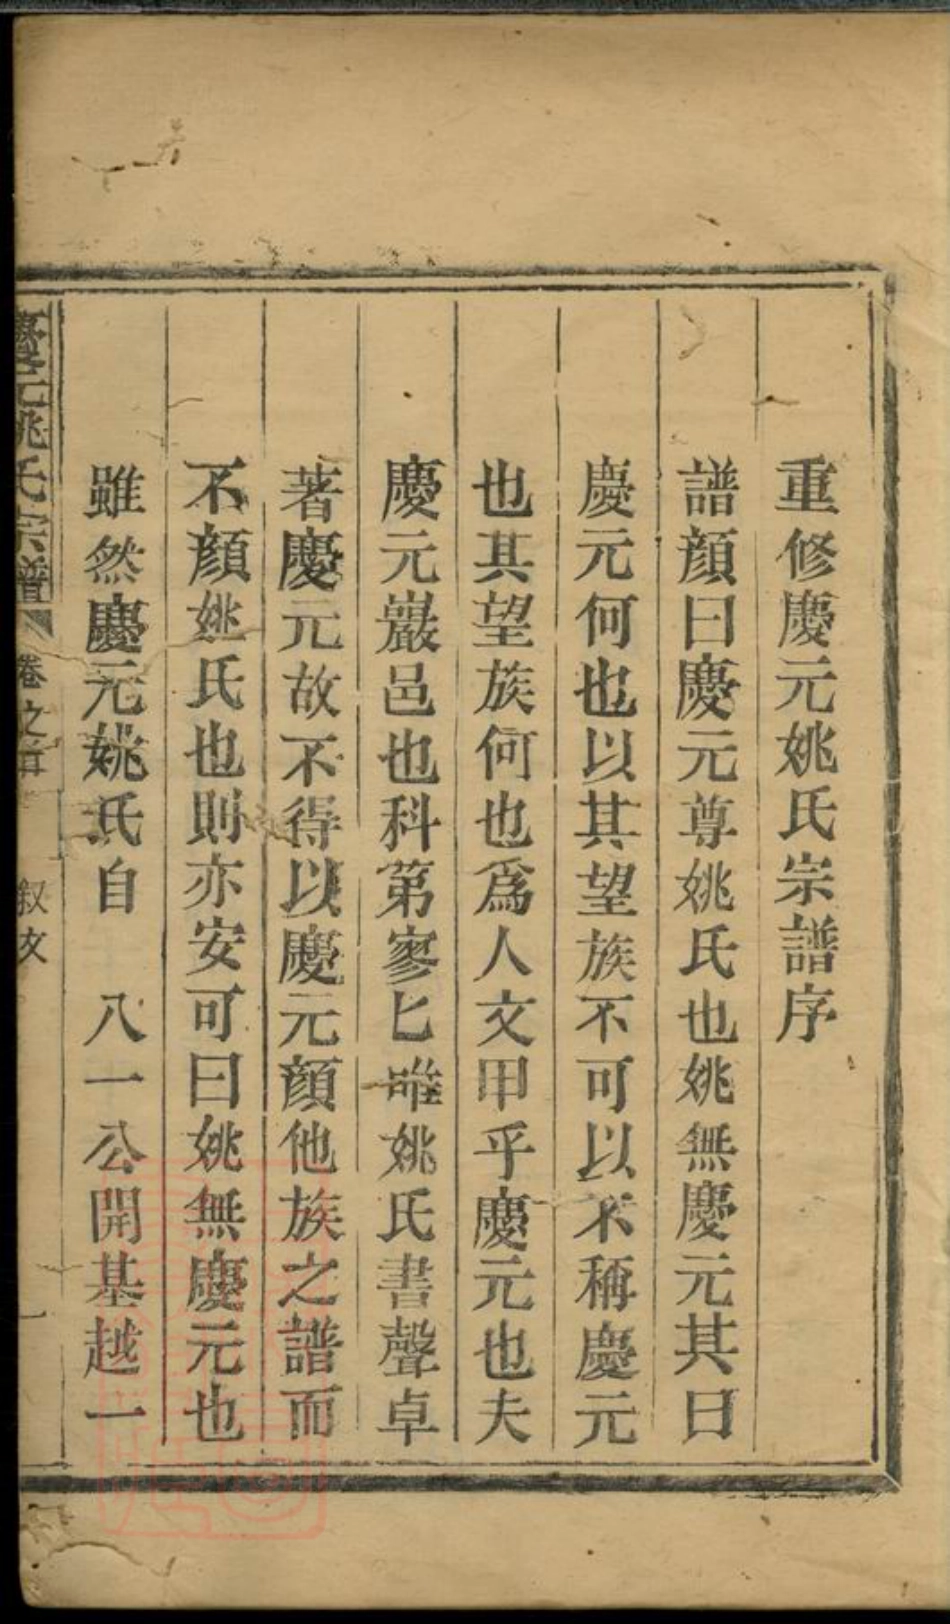 重修慶元姚氏宗譜序
譜顏曰慶元尊姚氏也姚無慶元其曰
慶元何也以其望族不可以不稱慶元
也其望族何也爲人文甲乎慶元也夫
慶元巖邑也科第寥匕唯姚氏書聲卓
著慶元故不得以慶元顏他族之譜而
不顏姚氏也則亦安可曰姚無慶元也
雖然慶元姚氏自 八一公開基越一
慶元姚氏宗譜 卷之首 叙文 一